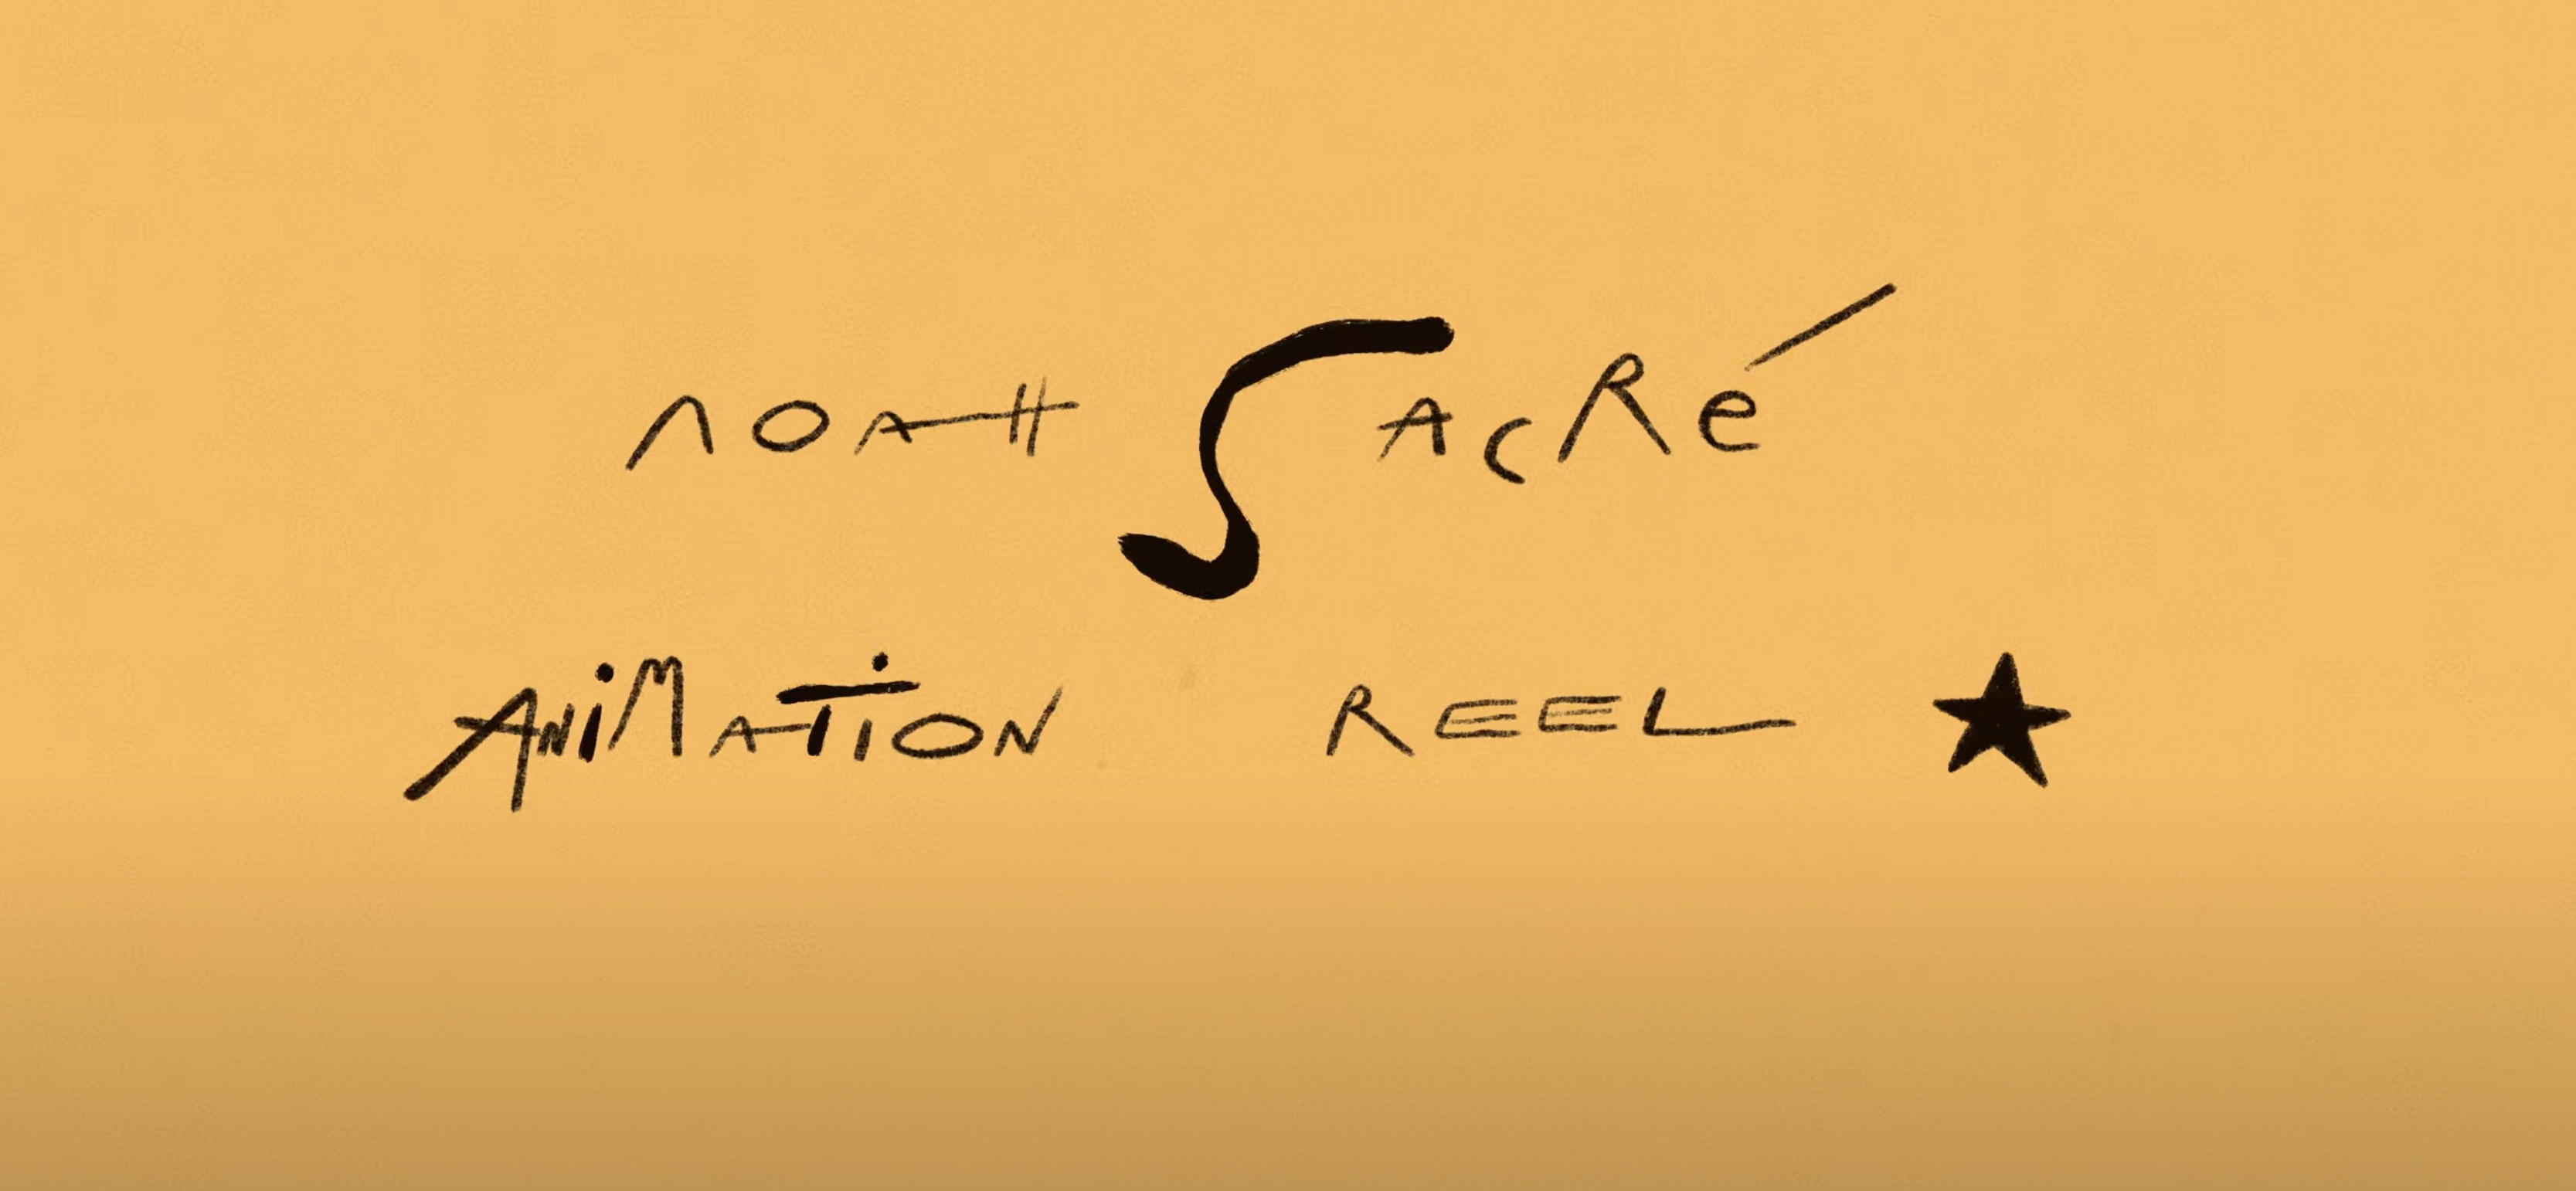 NOAH SACRé
ANiMATiON REEL ★